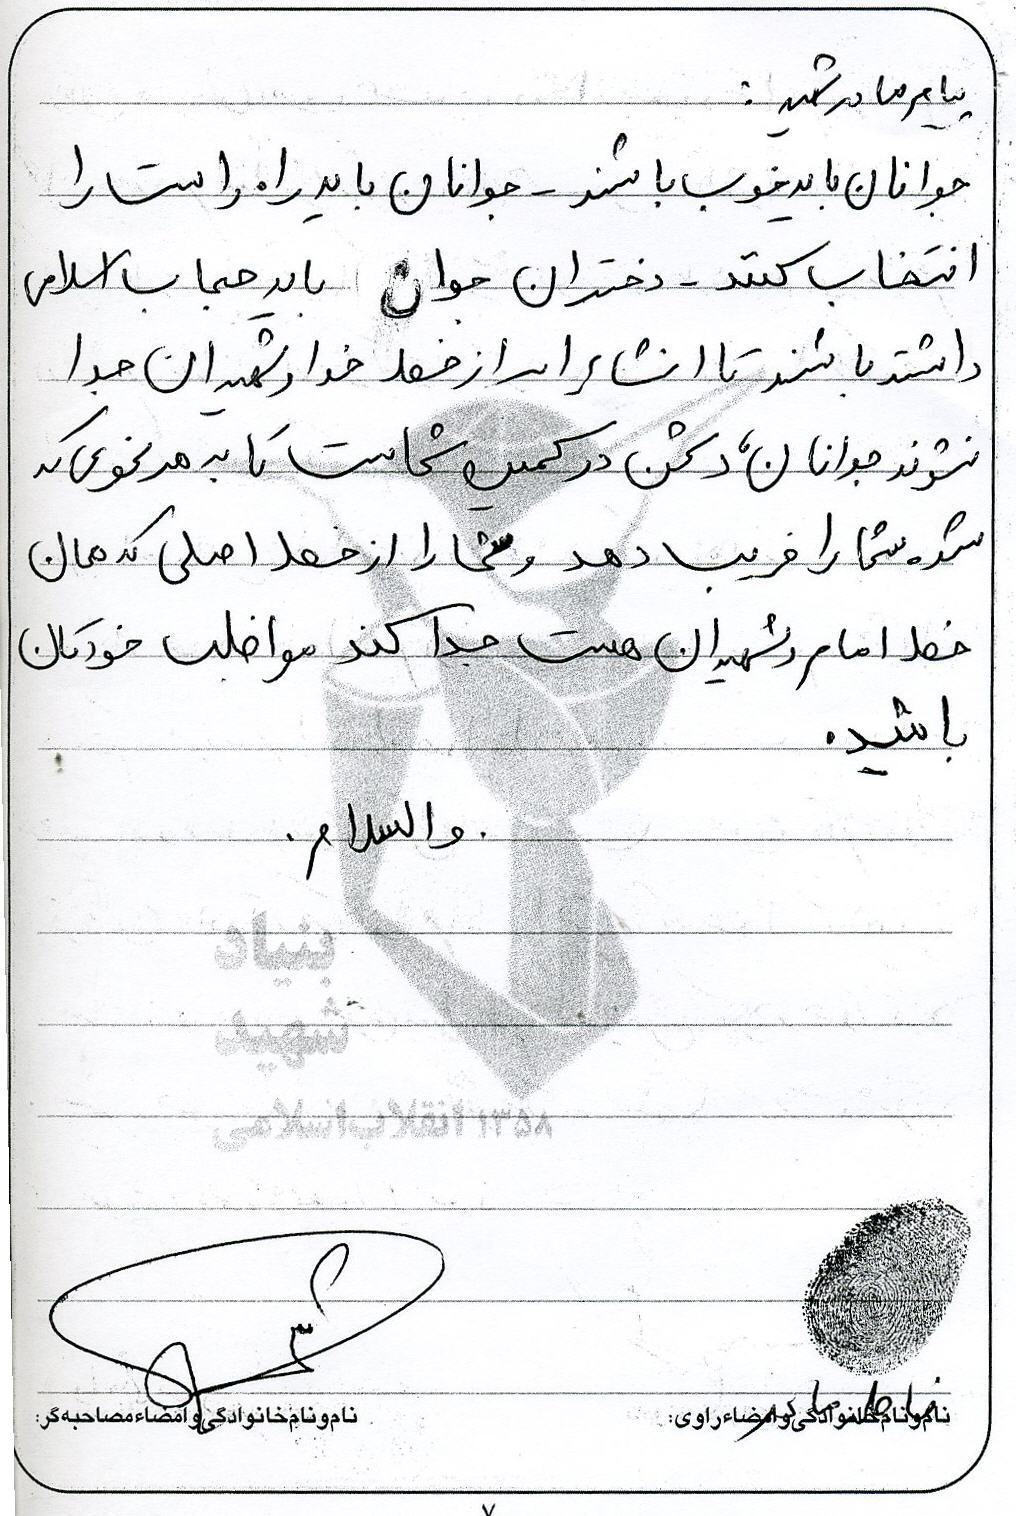 پیام مادر شهید :
جوانان باید خوب باشند - جوانان باید راه راست را
انتخاب کنند - دختران جوان باید حجاب اسلامی
داشته باشند تا انشاءالله از خط خدا و شهیدان جدا
نشوند جوانان، دشمن در کمین شماست تا به هر نحوی که
شده شما را فریب دهد و شما را از خط اصلی که همان
خط امام و شهیدان هست جدا کند مواظب خودتان
باشید.
. والسلام .
بنیاد
شهید
۱۳۵۸ انقلاب اسلامی
نام و نام خانوادگی و امضاء راوی:
نام و نام خانوادگی و امضاء مصاحبه گر:
۷